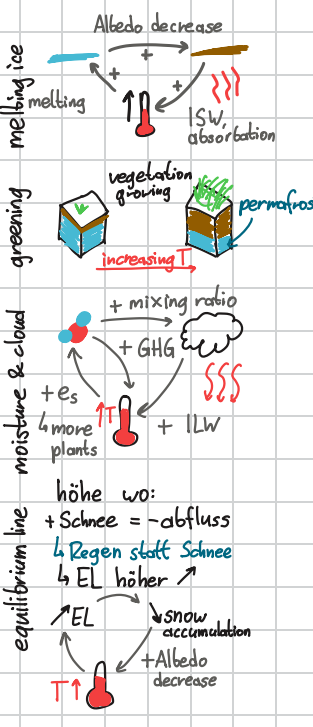 melting ice
Albedo decrease
+
+
+
melting
ISW,
absorbation
greening
vegetation
growing
permafros
increasing T
moisture & cloud
+ mixing ratio
+ GHG
+ es
↑T
↳ more
plants
+ ILW
equilibrium line
höhe wo:
+ Schnee = - abfluss
↳ Regen statt Schnee
↳ EL höher ↗
↗ EL
↘ snow
accumulation
+ Albedo
decrease
T↑